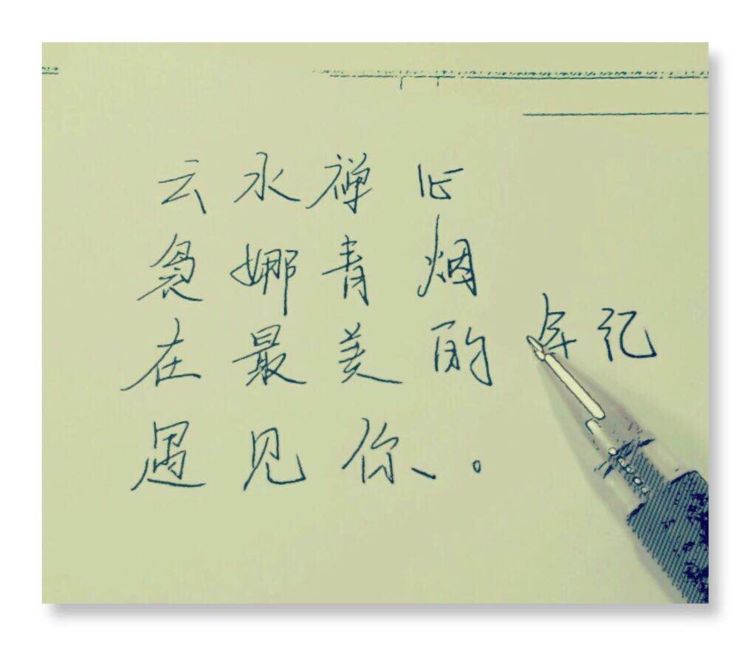 云水禅心
袅娜青烟
在最美的年记
遇见你。